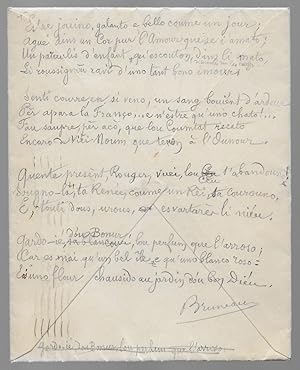 Estre jouino, galanto e bello coume un jour;
Aqué dins un Cor pur l'Amour que se i amato;
Un pateulis d'enfant, qu'escouton, dins li mato,
Li roussignòu ravi d'uno tant bono imour

Senti courre en si veno, un sang bouient d'ardour
Pèr apara la França... e n'èstre qu'uno chato!...
Fau saupre, pèr acò, que lou Coumtat
Encaro à l'Ounour.

Quente present, Rouger, vuei, lou t'abandouno
la Reino, coume un Rèi, ta Courouno,
E, touti dous, urous, esvartarés li nièu.

Gardo- dou Bonur, lou perfum que l'arroso;
Car es mai qu'un bel ile, e qu'uno blanco roso
Es uno flour chausido au jardin dóu bon Diéu.

Bruneau

Gardo-ié dou Bonur lou perfum que l'arroso